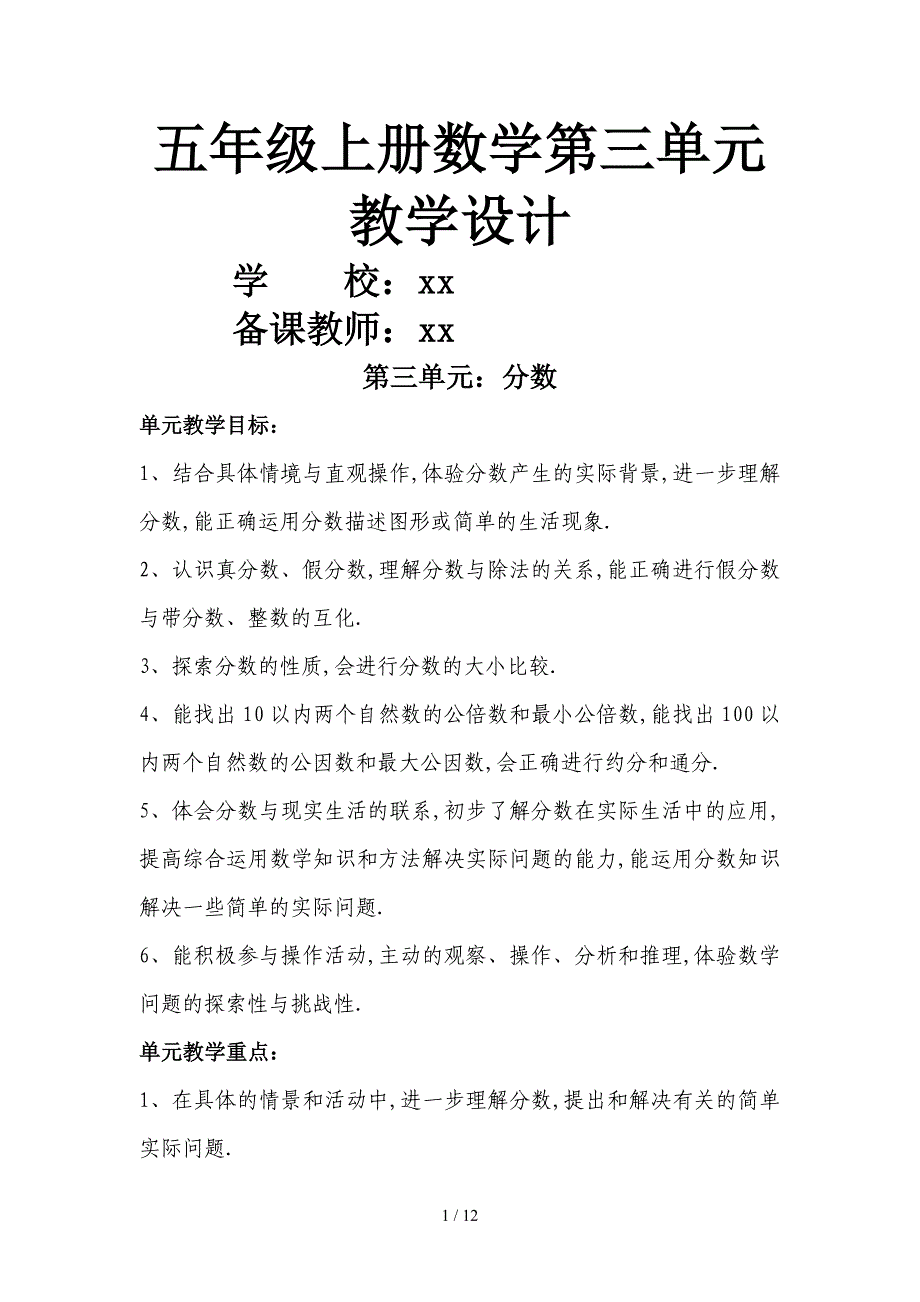 五年级上册数学第三单元
教学设计
学　　校：xx
备课教师：xx
第三单元：分数
单元教学目标：
1、结合具体情境与直观操作,体验分数产生的实际背景,进一步理解
分数,能正确运用分数描述图形或简单的生活现象.
2、认识真分数、假分数,理解分数与除法的关系,能正确进行假分数
与带分数、整数的互化.
3、探索分数的性质,会进行分数的大小比较.
4、能找出10以内两个自然数的公倍数和最小公倍数,能找出100以
内两个自然数的公因数和最大公因数,会正确进行约分和通分.
5、体会分数与现实生活的联系,初步了解分数在实际生活中的应用,
提高综合运用数学知识和方法解决实际问题的能力,能运用分数知识
解决一些简单的实际问题.
6、能积极参与操作活动,主动的观察、操作、分析和推理,体验数学
问题的探索性与挑战性.
单元教学重点：
1、在具体的情景和活动中,进一步理解分数,提出和解决有关的简单
实际问题.
1 / 12